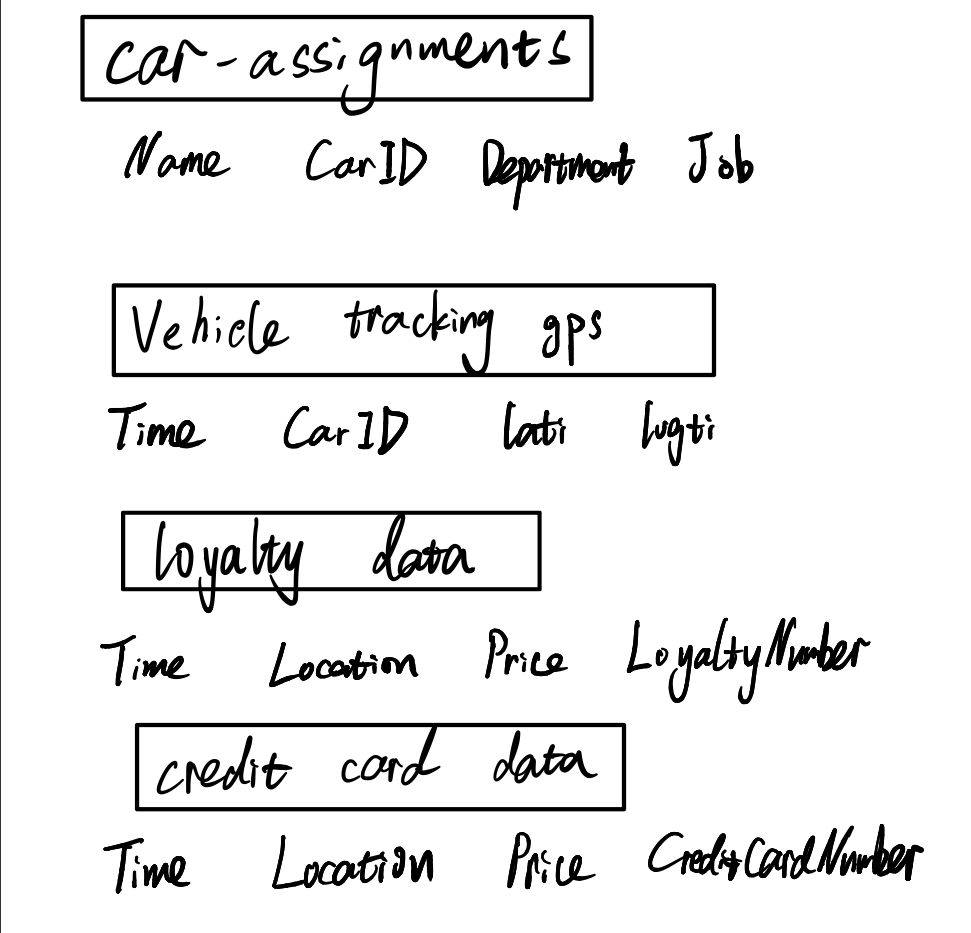 car-assignments
Name CarID Department Job
Vehicle tracking gps
Time CarID lati lugti
loyalty data
Time Location Price LoyaltyNumber
credit card data
Time Location Price CreditCardNumber